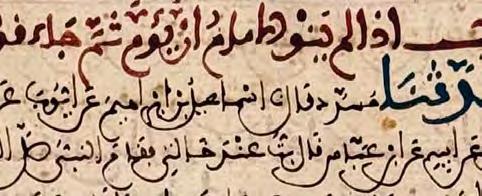 اذا لم ينو الامام ان يؤم ثم جاء
حدثنا مسدد قال اسماعيل بن ابراهيم عن ايوب
ابيه عن ابن عباس قال بت عند خالتي فقام النبي صلى